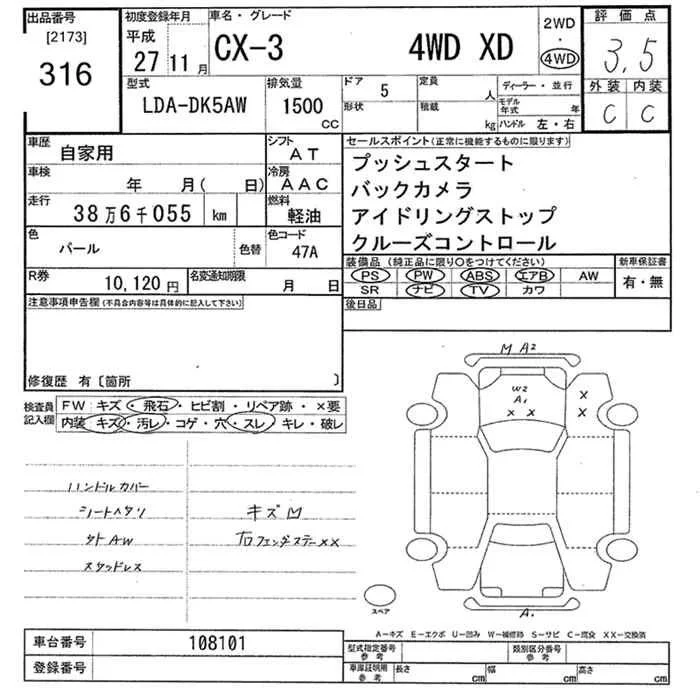 出品番号
[2173]
316
初度登録年月
平成
27 11 月
車名・グレード
CX-3 4WD XD
2WD
・
4WD
評価点
3.5
外装 内装
C C
型式
LDA-DK5AW
排気量
1500
CC
ドア 5
形状
定員 人
積載 kg
ディーラー・並行
モデル年式 年
ハンドル 左・右
車歴
自家用
シフト
AT
車検
年 月( 日)
冷房
AAC
走行
38万6千055 km
燃料
軽油
色
パール
色替
色コード
47A
R券
10,120円
名変通知期限
月 日
セールスポイント(正常に機能するものに限ります)
プッシュスタート
バックカメラ
アイドリングストップ
クルーズコントロール
装備品(純正品に限り○をつけてください)
PS PW ABS エアB AW
SR ナビ TV カワ
新車保証書
有・無
後日品
注意事項申告欄(不具合内容等は具体的に記入して下さい)
修復歴 有〔箇所 〕
検査員記入欄
FW キズ・飛石・ヒビ割・リペア跡・×要
内装 キズ・汚レ・コゲ・穴・スレ・キレ・破レ
ハンドルカバー
シートヘタリ
サトAW
スタッドレス
キズ凹
M A2
W2
A1
× ×
×
×
A1
スペア
A－キズ E－エクボ U－凹み W－補修跡 S－サビ C－腐食 XX－交換済
車台番号 108101
登録番号
型式指定番号 参考
類別区分番号 参考
車庫証明用 参考
長さ cm
幅 cm
高さ cm